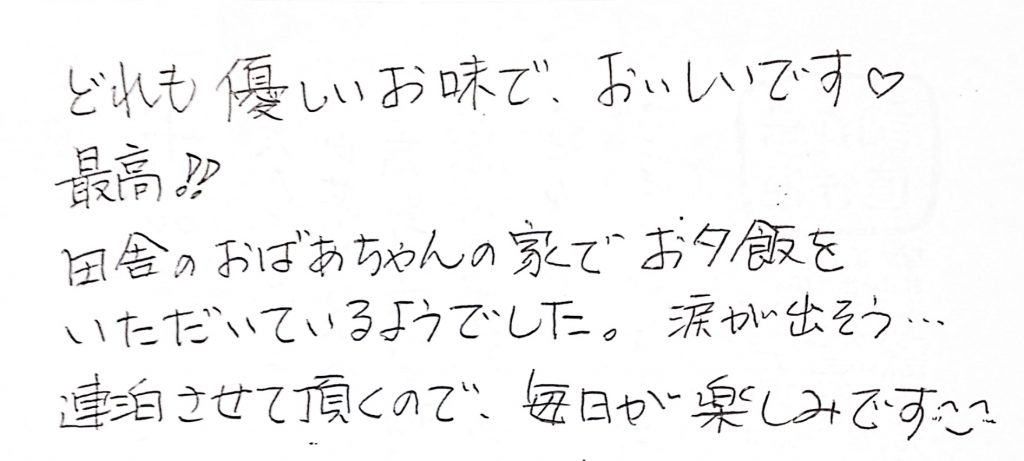 どれも優しいお味で、おいしいです♡
最高!!
田舎のおばあちゃんの家でお夕飯を
いただいているようでした。涙が出そう…
連泊させて頂くので、毎日が楽しみです